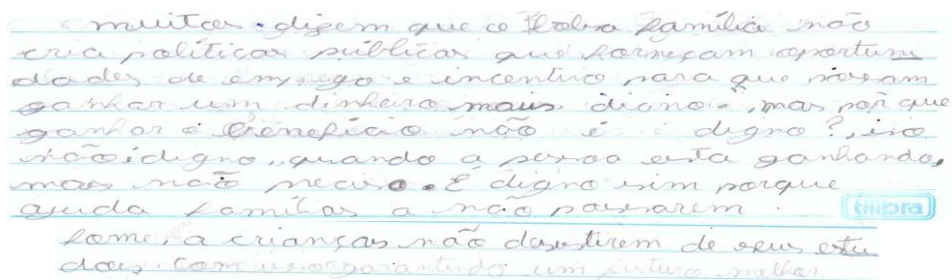 muitos dizem que o Bolsa família não
cria políticas públicas que forneçam oportuni
dades de emprego e incentivo para que possam
ganhar um dinheiro mais "digno", mas por que
ganhar o benefício não é digno?, isso
não é digno, quando a pessoa esta ganhando,
mas não precisa. É digno sim porque
ajuda famílias a não passarem
tilibra
fome, a crianças não desistirem de seus estu
dos. Com isso garantindo um futuro melhor